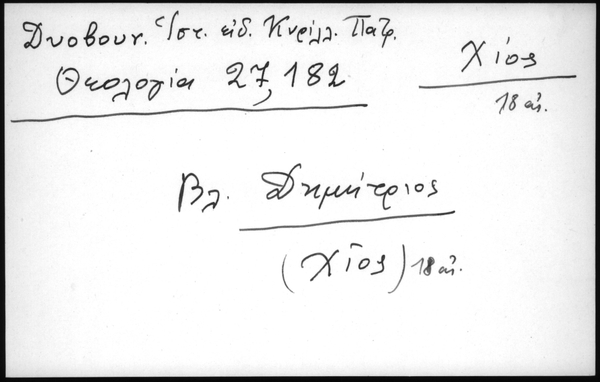 Δυοβουν. Ἱστ. εἰδ. Κυρίλλ. Πατρ.
Θεολογία 27, 182
Χίος
18 αἰ.
Βλ. Δημήτριος
(Χῖος) 18 αἰ.